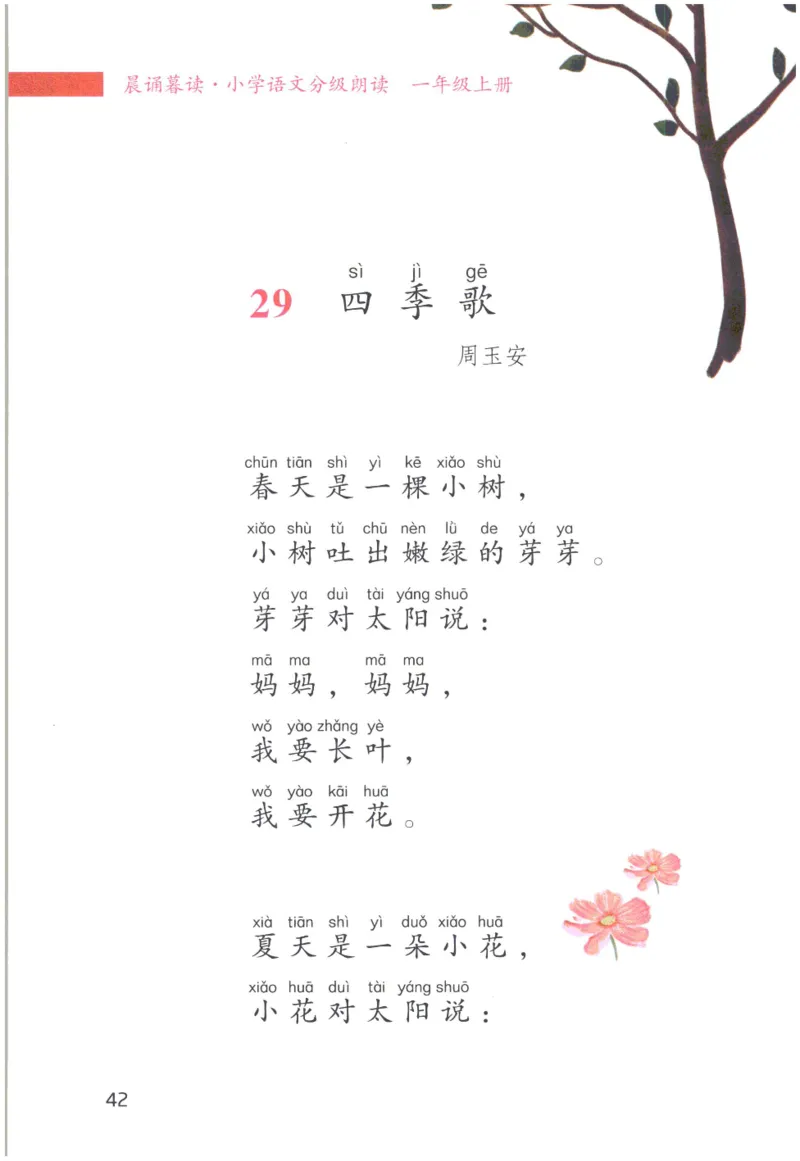 晨诵暮读·小学语文分级朗读 一年级上册
sì jì gē
29 四季歌
周玉安
chūn tiān shì yì kē xiǎo shù
春天是一棵小树，
xiǎo shù tǔ chū nèn lǜ de yá ya
小树吐出嫩绿的芽芽。
yá ya duì tài yáng shuō
芽芽对太阳说：
mā ma mā ma
妈妈，妈妈，
wǒ yào zhǎng yè
我要长叶，
wǒ yào kāi huā
我要开花。
xià tiān shì yì duǒ xiǎo huā
夏天是一朵小花，
xiǎo huā duì tài yáng shuō
小花对太阳说：
42